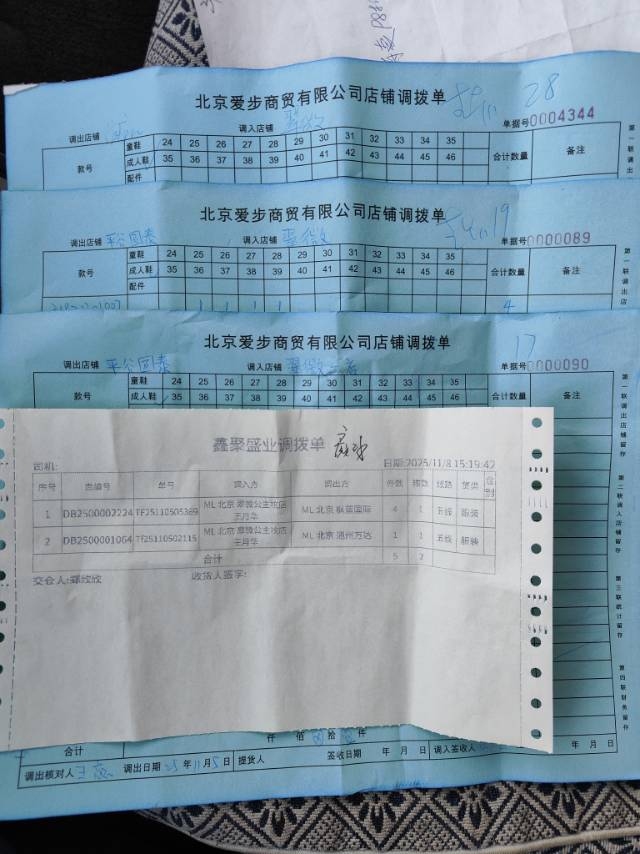 北京爱步商贸有限公司店铺调拨单
28
调出店铺 调入店铺 翠微 单据号0004344
款号 童鞋 24 25 26 27 28 29 30 31 32 33 34 35 合计数量 备注
成人鞋 35 36 37 38 39 40 41 42 43 44 45 46
配件
第一联调出
北京爱步商贸有限公司店铺调拨单
19
调出店铺 平谷国泰 调入店铺 翠微 单据号0000089
款号 童鞋 24 25 26 27 28 29 30 31 32 33 34 35 合计数量 备注
成人鞋 35 36 37 38 39 40 41 42 43 44 45 46
配件
1 1 1 1 4
第一联调出店
北京爱步商贸有限公司店铺调拨单
17
调出店铺 平谷国泰 调入店铺 翠微 单据号0000090
款号 童鞋 24 25 26 27 28 29 30 31 32 33 34 35 合计数量 备注
成人鞋 35 36 37 38 39 40 41 42 43 44 45 46
第一联调出店铺留存
第二联调入店铺留存
第三联统计留存
第四联财务留存
鑫聚盛业调拨单
司机: 日期:2025/11/8 15:19:42
序号 单号 调入方 调出方 件数 线路
1 DB2500002224 TF25110505389 ML 北京 翠微公主坟店 王月华 ML 北京 枫蓝国际 4 1 五线 服装
2 DB2500001064 TF25110502115 ML 北京 翠微公主坟店 王月华 ML 北京 通州万达 1 1 五线 服装
合计 5 2
交仓人: 收货人签字:
合计 仟 佰 拾
调出核对人 王 调出日期 25年11月5日 提货人 签收日期 年 月 日 调入签收人 年 月 日